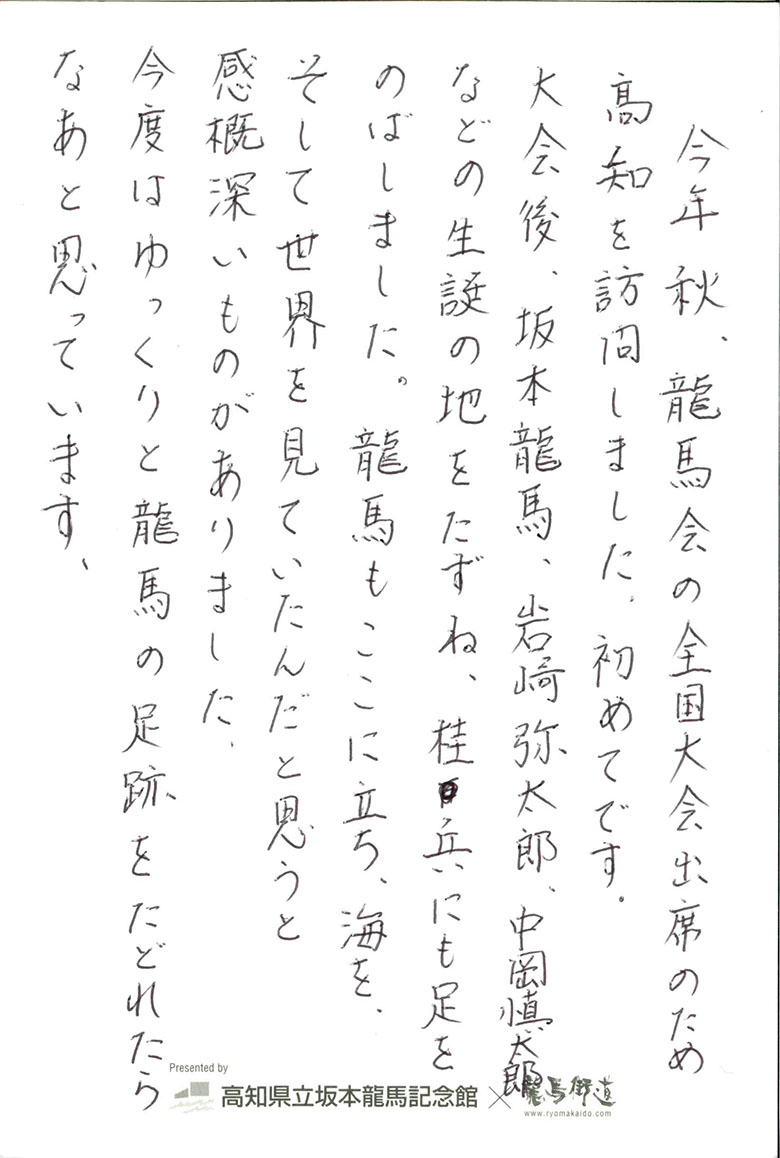 今年秋、龍馬会の全国大会出席のため
高知を訪問しました。初めてです。
大会後、坂本龍馬、岩崎弥太郎、中岡慎太郎
などの生誕の地をたずね、桂兵にも足を
のばしました。龍馬もここに立ち、海を、
そして世界を見ていたんだと思うと
感概深いものがありました、
今度はゆっくりと龍馬の足跡をたどれたら
なあと思っています、
Presented by
高知県立坂本龍馬記念館×龍馬街道
www.ryomakaido.com